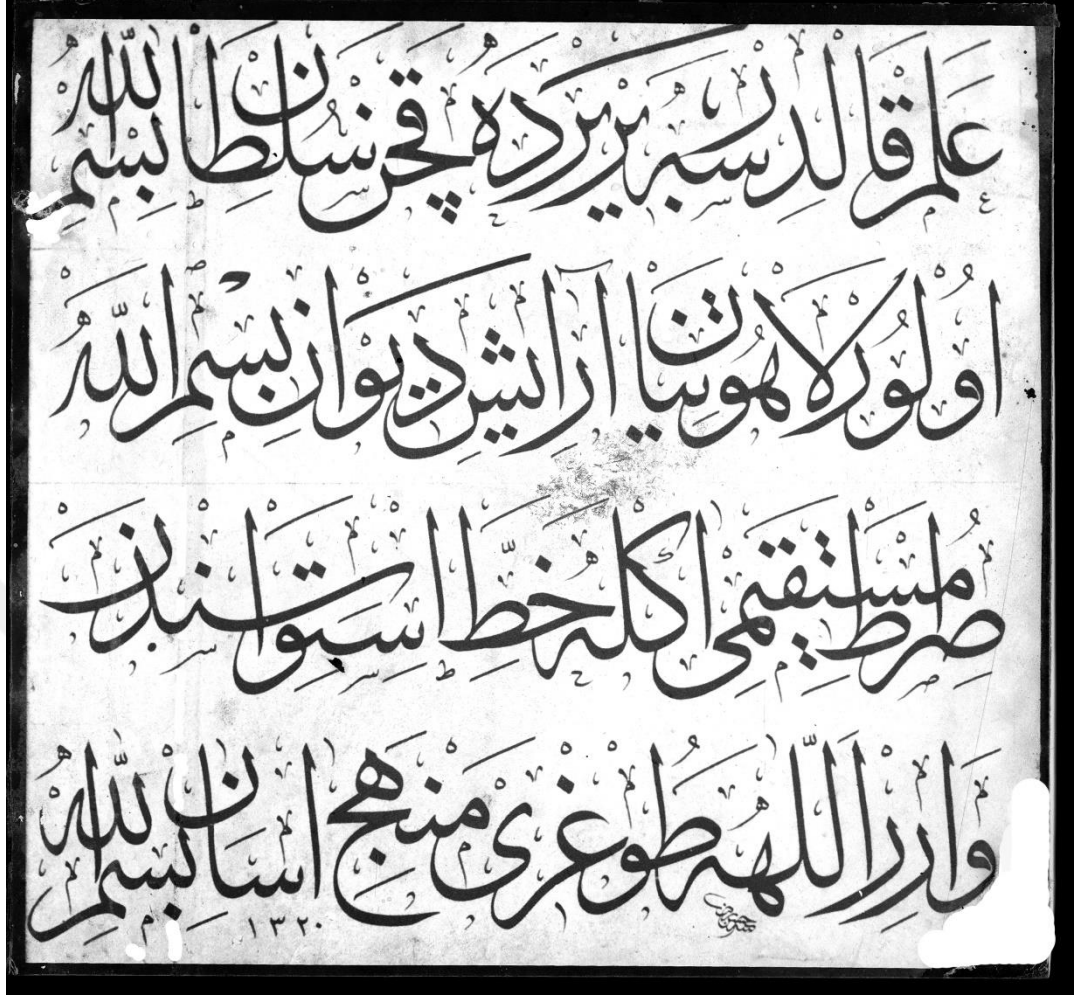 علم قالدرسه بريرده قچن سلطان بسم الله
اولور لاهوتيان آرايش ديوان بسم الله
صرط مستقيمى اكله خط استواسندن
وارر اللهه طوغرى منهج اسان بسم الله
١٣٢٠